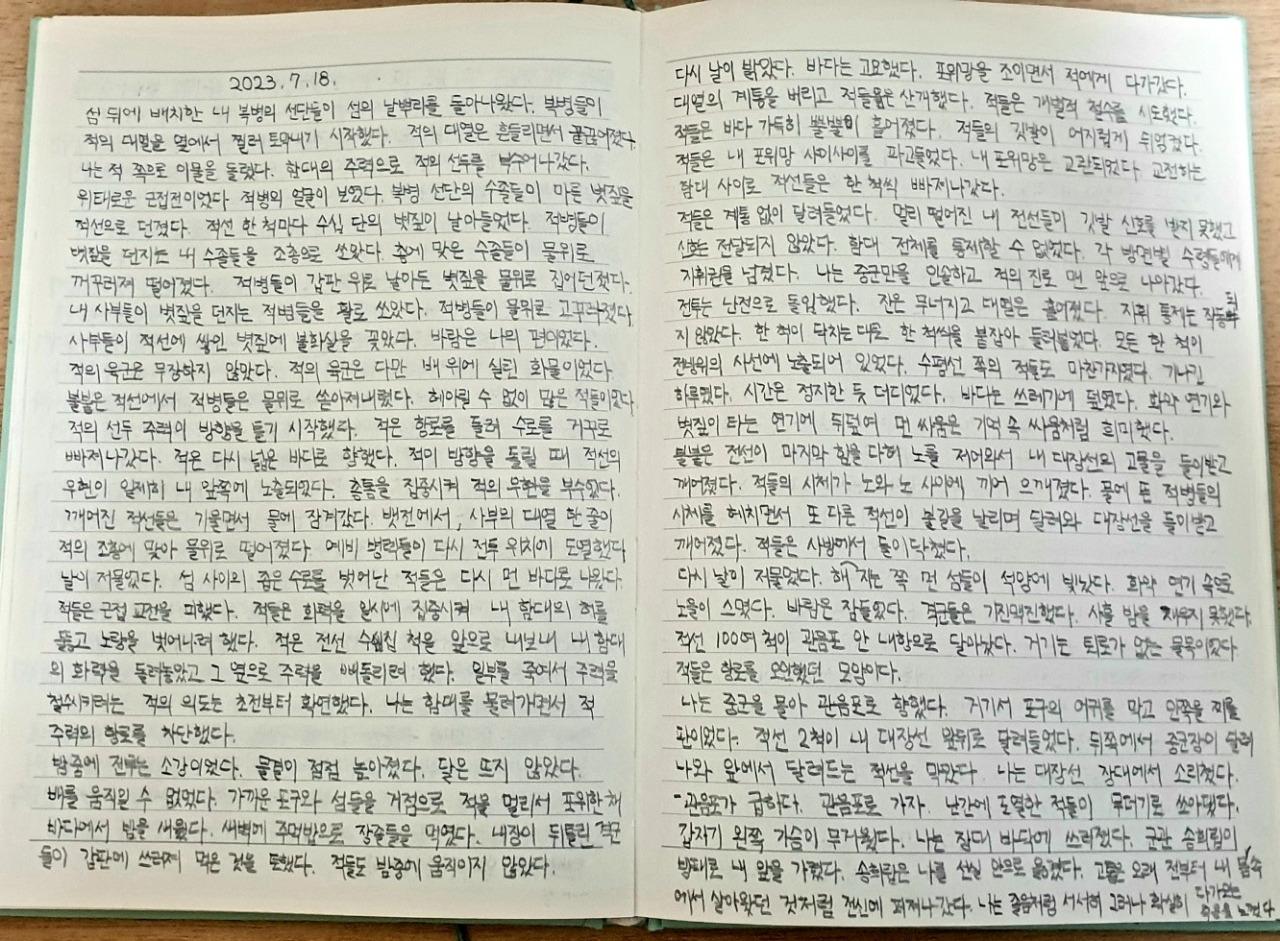 2023. 7. 18.
섬 뒤에 배치한 내 복병의 선단들이 섬의 날뿌리를 돌아나왔다. 복병들이
적의 대열을 옆에서 찔러 토막내기 시작했다. 적의 대열은 흔들리면서 끊어졌다.
나는 적 쪽으로 이물을 돌렸다. 함대의 주력으로 적의 선두를 부수어나갔다.
위태로운 근접전이었다 적병의 얼굴이 보였다. 복병 선단의 수졸들이 마른 볏짚을
적선으로 던졌다. 적선 한 척마다 수십 단의 볏짚이 날아들었다. 적병들이
볏짚을 던지는 내 수졸들을 조총으로 쏘았다. 총에 맞은 수졸들이 물위로
꺼꾸러져 떨어졌다. 적병들이 갑판 위로 날아든 볏짚을 물위로 집어던졌다.
내 사부들이 볏짚을 던지는 적병들을 활로 쏘았다. 적병들이 물위로 고꾸라졌다.
사부들이 적선에 쌓인 볏짚에 불화살을 꽂았다. 바람은 나의 편이었다.
적의 육군은 무장하지 않았다. 적의 육군은 다만 배 위에 실린 화물이었다.
불붙은 적선에서 적병들은 물위로 쏟아져내렸다. 헤아릴 수 없이 많은 적들이었다
적의 선두 주력이 방향을 틀기 시작했다. 적은 항로를 돌려 수로를 거꾸로
빠져나갔다. 적은 다시 넓은 바다로 향했다. 적이 방향을 돌릴 때 적선의
우현이 일제히 내 앞쪽에 노출되었다. 총통을 집중시켜 적의 우현을 부수었다.
깨어진 적선들은 기울면서 물에 잠겨갔다. 뱃전에서, 사부의 대열 한 줄이
적의 조총에 맞아 물위로 떨어졌다. 예비 병력들이 다시 전투 위치에 도열했다
날이 저물었다. 섬 사이의 좁은 수로를 벗어난 적들은 다시 먼 바다로 나왔다.
적들은 근접 교전을 피했다. 적들은 화력을 일시에 집중시켜 내 함대의 허리를
뚫고 노량을 벗어나려 했다. 적은 전선 수십 척을 앞으로 내보내 내 함대
의 화력을 돌려놓았고 그 옆으로 주력을 빼돌리려 했다. 일부를 죽여서 주력을
철수시키려는 적의 의도는 초전부터 확연했다. 나는 함대를 물러가면서 적
주력의 항로를 차단했다.
밤중에 전투는 소강이었다. 물결이 점점 높아졌다. 달은 뜨지 않았다.
배를 움직일 수 없었다. 가까운 포구와 섬들을 거점으로 적을 멀리서 포위한 채
바다에서 밤을 새웠다. 새벽에 주먹밥으로 장졸들을 먹였다. 내장이 뒤틀린 격군
들이 갑판에 쓰러져 먹은 것을 토했다. 적들도 밤중에 움직이지 않았다.
다시 날이 밝았다. 바다는 고요했다. 포위망을 조이면서 적에게 다가갔다.
대열의 계통을 버리고 적들은 산개했다. 적들은 개별적 철수를 시도했다.
적들은 바다 가득히 뿔뿔이 흩어졌다. 적들의 깃발이 어지럽게 뒤엉켰다.
적들은 내 포위망 사이사이를 파고들었다. 내 포위망은 교란되었다. 교전하는
함대 사이로 적선들은 한 척씩 빠져나갔다.
적들은 계통 없이 달려들었다. 멀리 떨어진 내 전선들이 깃발 신호를 받지 못했고
신호는 전달되지 않았다. 함대 전체를 통제할 수 없었다. 각 방면별 수령들에게
지휘권을 넘겼다. 나는 중군만을 인솔하고 적의 진로 맨 앞으로 나아갔다.
전투는 난전으로 돌입했다. 진은 무너지고 대열은 흩어졌다. 지휘 통제는 작동되
지 않았다. 한 척이 닥치는 대로 한 척씩을 붙잡아 들러붙었다. 모든 한 척이
전방위의 사선에 노출되어 있었다. 수평선 쪽의 적들도 마찬가지였다. 기나긴
하루였다. 시간은 정지한 듯 더디었다. 바다는 쓰레기에 덮였다. 화약 연기와
볏짚이 타는 연기에 뒤덮여 먼 싸움은 기억 속 싸움처럼 희미했다.
불붙은 전선이 마지막 힘을 다해 노를 저어와서 내 대장선의 고물을 들이받고
깨어졌다. 적들의 시체가 노와 노 사이에 끼어 으깨졌다. 물에 뜬 적병들의
시체를 헤치면서 또 다른 적선이 불길을 날리며 달려와 대장선을 들이받고
깨어졌다. 적들은 사방에서 들이닥쳤다.
다시 날이 저물었다. 해 지는 쪽 먼 섬들이 석양에 빛났다. 화약 연기 속으로
노을이 스몄다. 바람은 잠들었다. 격군들은 기진맥진했다. 사흘 밤을 재우지 못했다.
적선 100여 척이 관음포 안 내항으로 달아났다. 거기는 퇴로가 없는 물목이었다
적들은 항로를 오인했던 모양이다.
나는 중군을 몰아 관음포로 향했다. 거기서 포구의 어귀를 막고 안쪽을 지를
판이었다. 적선 2척이 내 대장선 앞뒤로 달려들었다. 뒤쪽에서 중군장이 달려
나와 앞에서 달려드는 적선을 막았다. 나는 대장선 장대에서 소리쳤다.
-관음포가 급하다. 관음포로 가자. 난간에 도열한 적들이 무더기로 쏘아댔다.
갑자기 왼쪽 가슴이 무거웠다. 나는 장대 바닥에 쓰러졌다. 군관 송희립이
방패로 내 앞을 가렸다. 송희립은 나를 선실 안으로 옮겼다. 고통은 오래 전부터 내 몸속
에서 살아왔던 것처럼 전신에 퍼져나갔다. 나는 졸음처럼 서서히 그러나 확실히 다가오는
죽음을 느꼈다